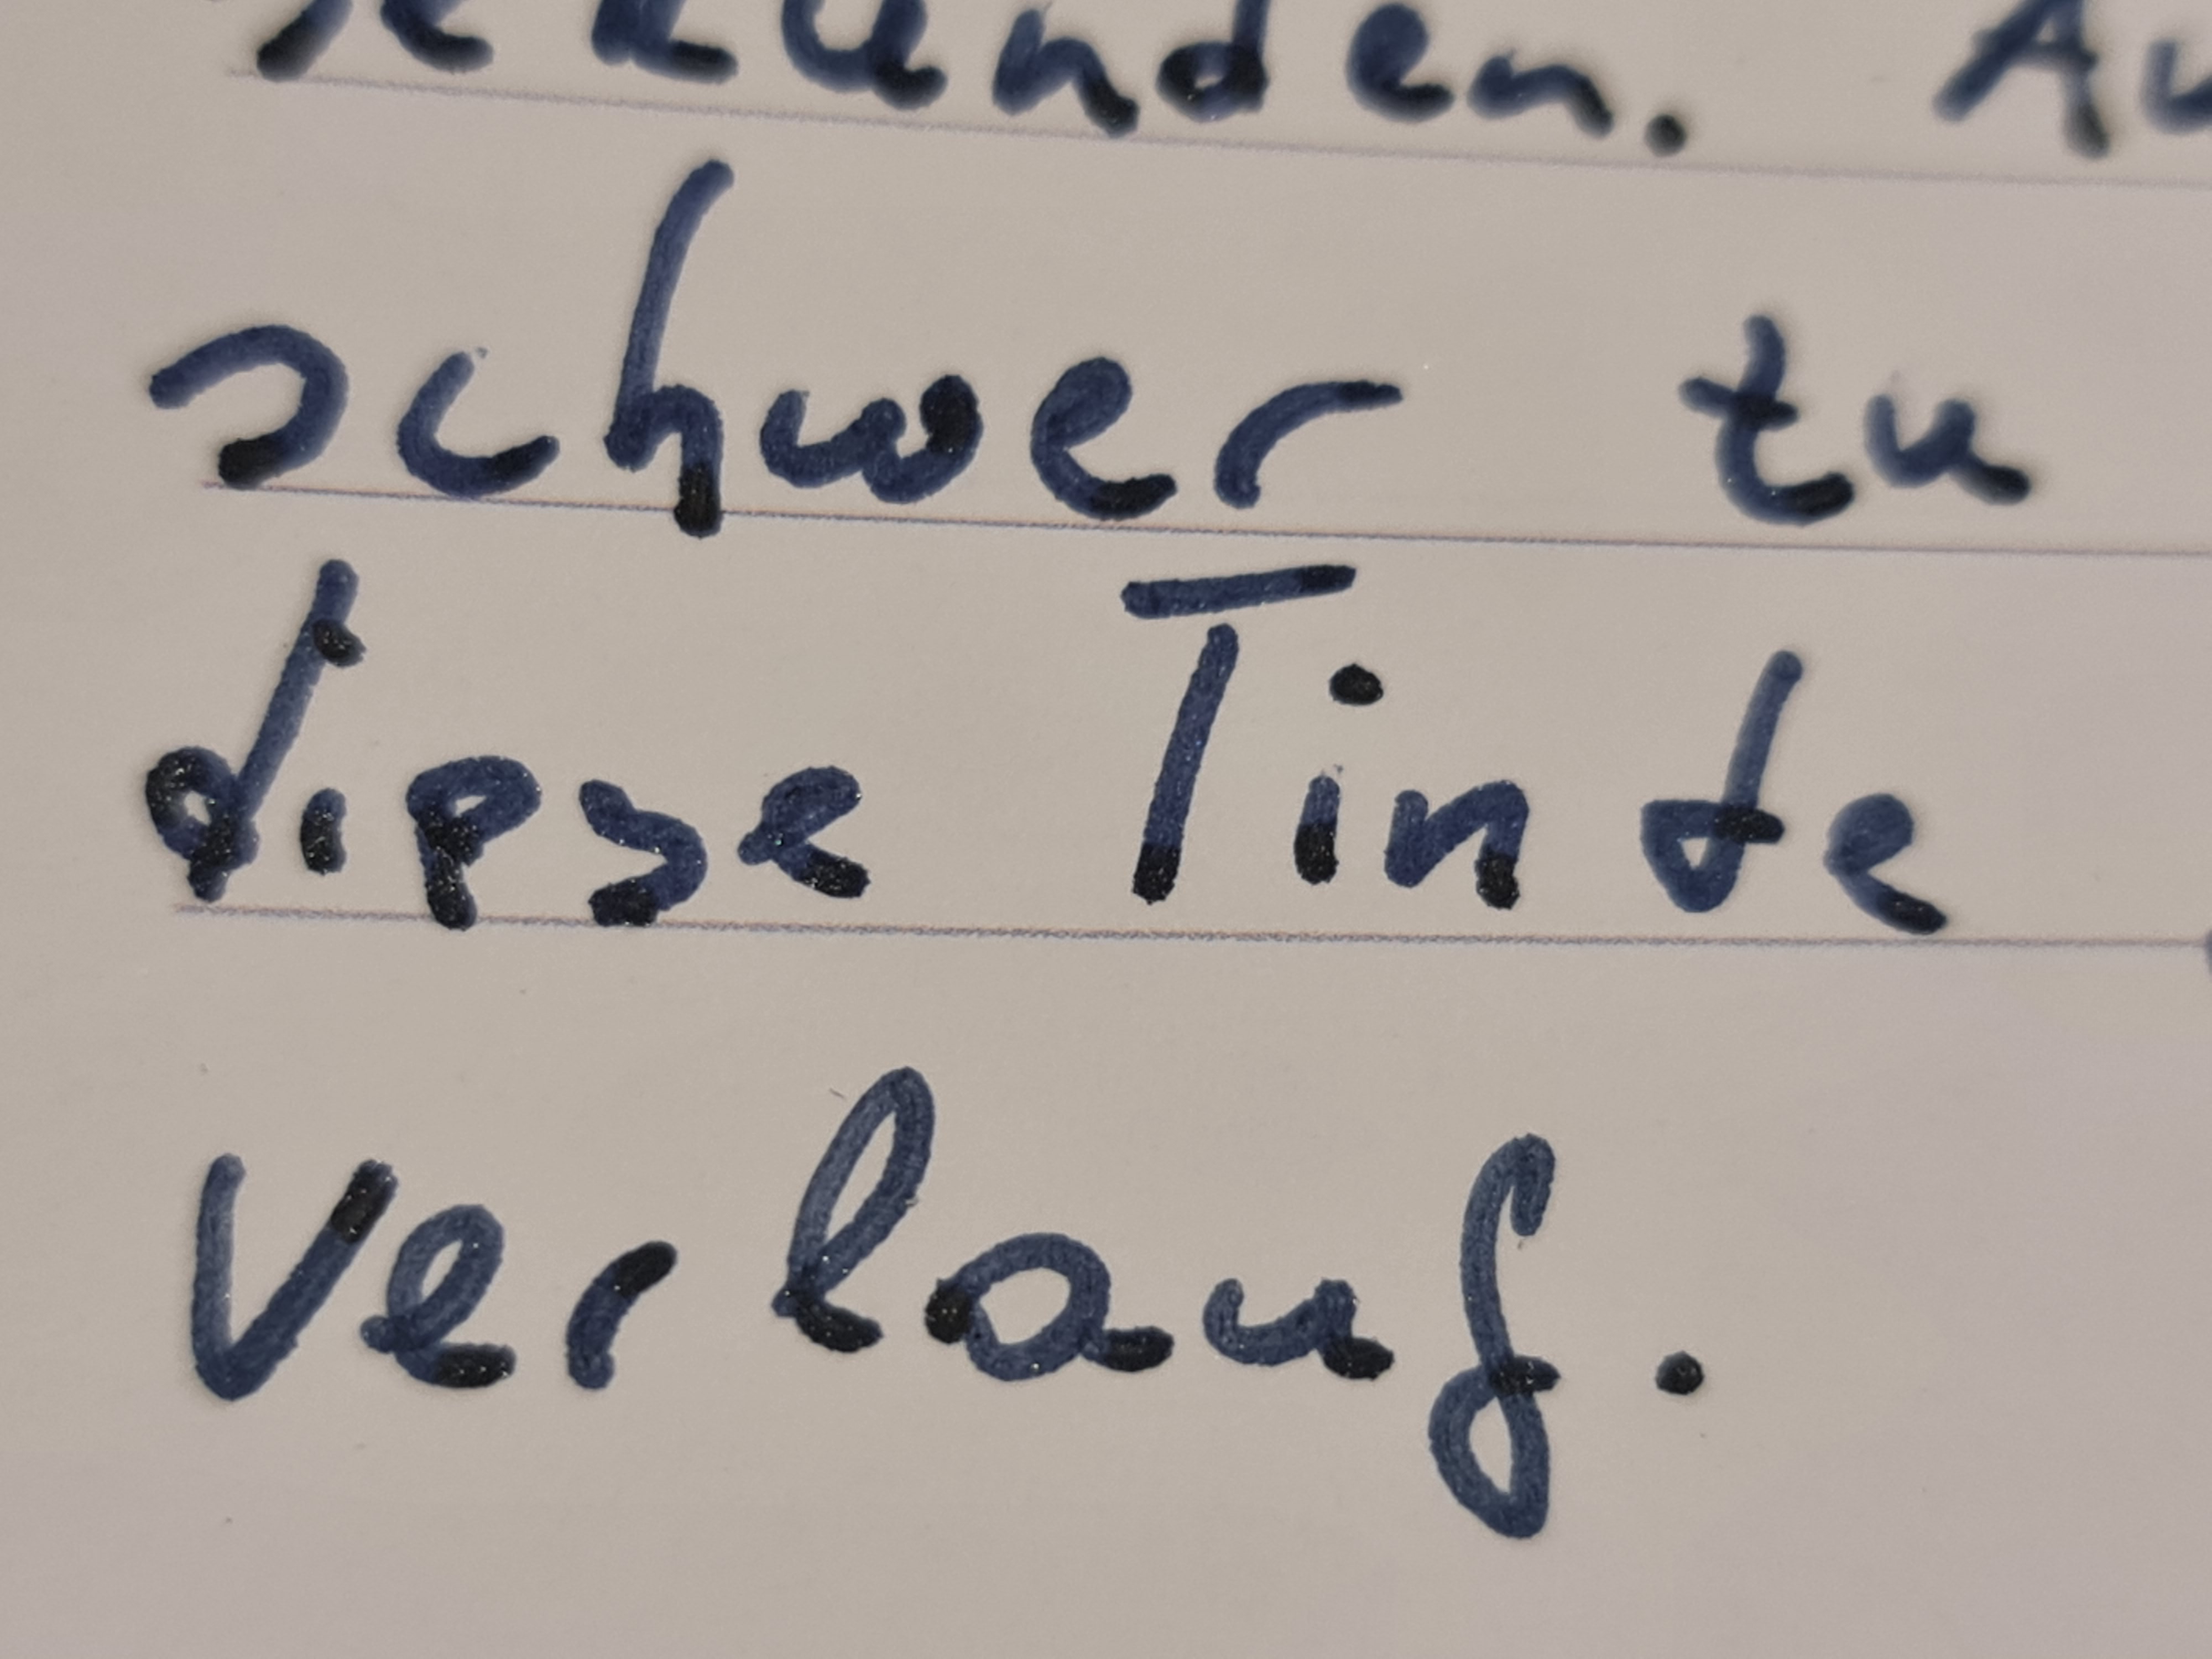 sekunden. Au
schwer tu
diese Tinte
Verlauf.